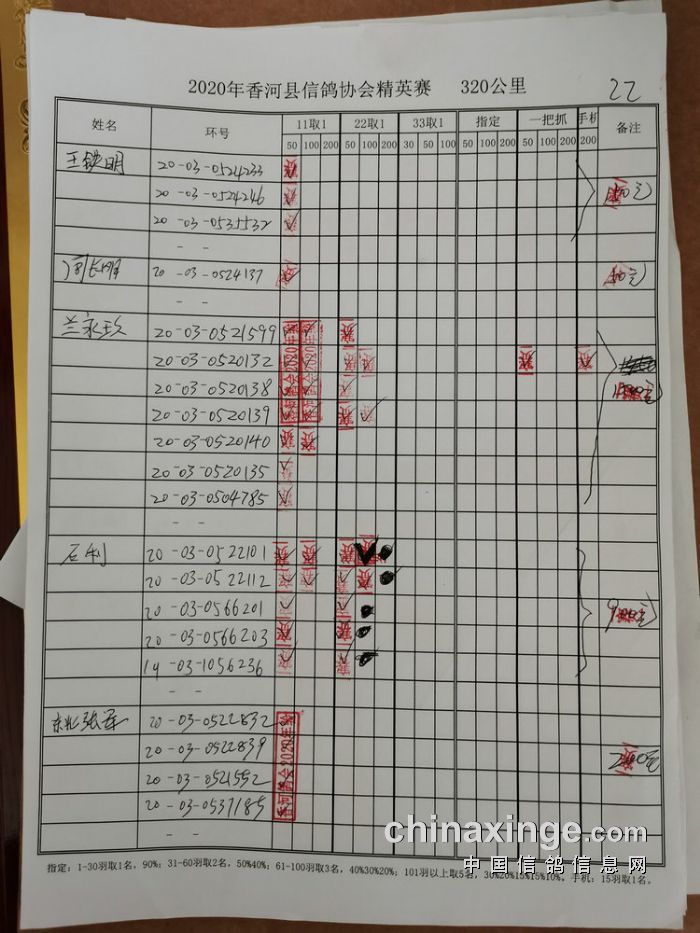 2020年香河县信鸽协会精英赛 320公里
22
姓名 环号 11取1 22取1 33取1 指定 一把抓 手机 备注
50 100 200 50 100 200 30 50 100 50 100 200 50 100 200 200
王铁明 20-03-0524233
20-03-0524246
20-03-0535532
- -
长明 20-03-0524137
- -
兰永 20-03-0521599
20-03-0520132
20-03-0520138
20-03-0520139
20-03-0520140
20-03-0520135
20-03-0504785
- -
石利 20-03-0522101
20-03-0522112
20-03-0566201
20-03-0566203
14-03-1056236
- -
张军 20-03-0522832
20-03-0522839
20-03-0521552
20-03-0537185
- -
chinaxinge.com
中国信鸽信息网
指定：1-30羽取1名，90%；31-60羽取2名，50%40%；61-100羽取3名，40%30%20%；101羽以上取5名，30%20%15%15%10%。手机：15羽取1名。